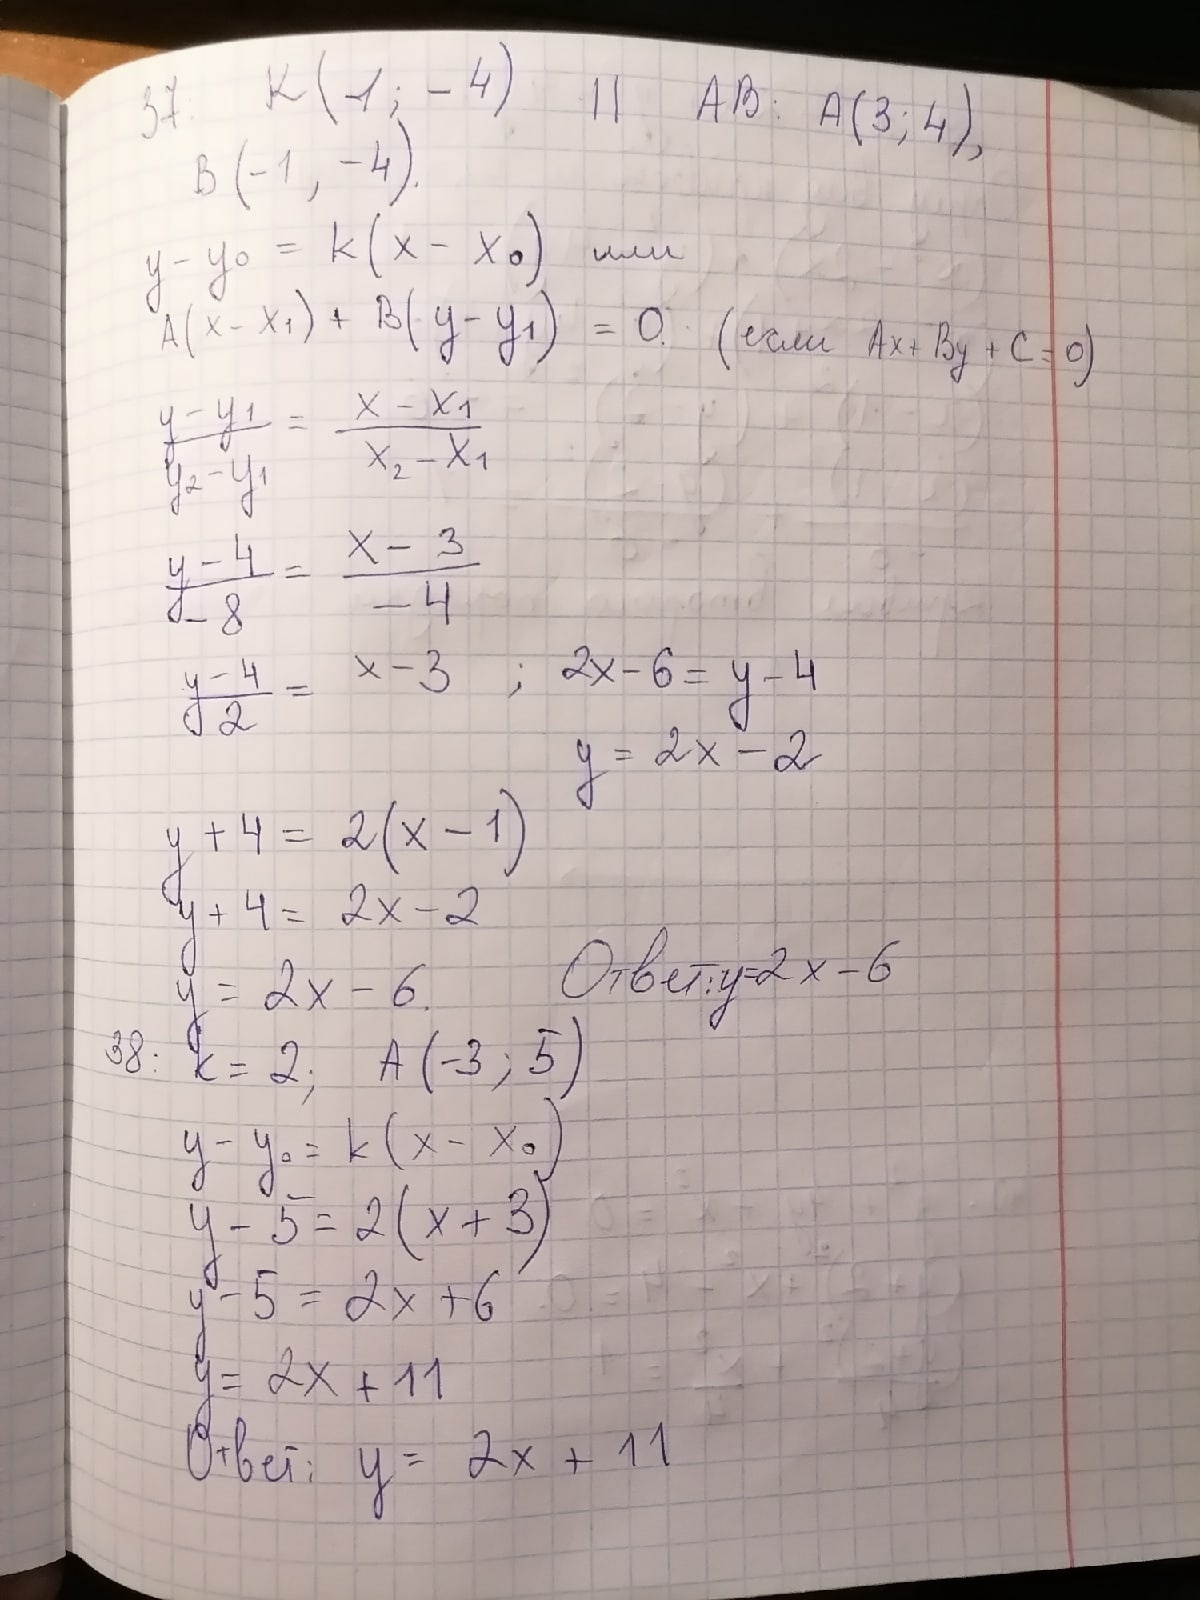 37. K(1; -4) || AB: A(3; 4),
B(-1, -4).
y - y₀ = k(x - x₀) или
A(x - x₁) + B(y - y₁) = 0. (если Ax + By + C = 0)
(y - y₁)/(y₂ - y₁) = (x - x₁)/(x₂ - x₁)
(y - 4)/(-8) = (x - 3)/(-4)
(y - 4)/2 = x - 3 ; 2x - 6 = y - 4
y = 2x - 2
y + 4 = 2(x - 1)
y + 4 = 2x - 2
y = 2x - 6. Ответ: y = 2x - 6
38: k = 2; A(-3; 5)
y - y₀ = k(x - x₀)
y - 5 = 2(x + 3)
y - 5 = 2x + 6
y = 2x + 11
Ответ: y = 2x + 11